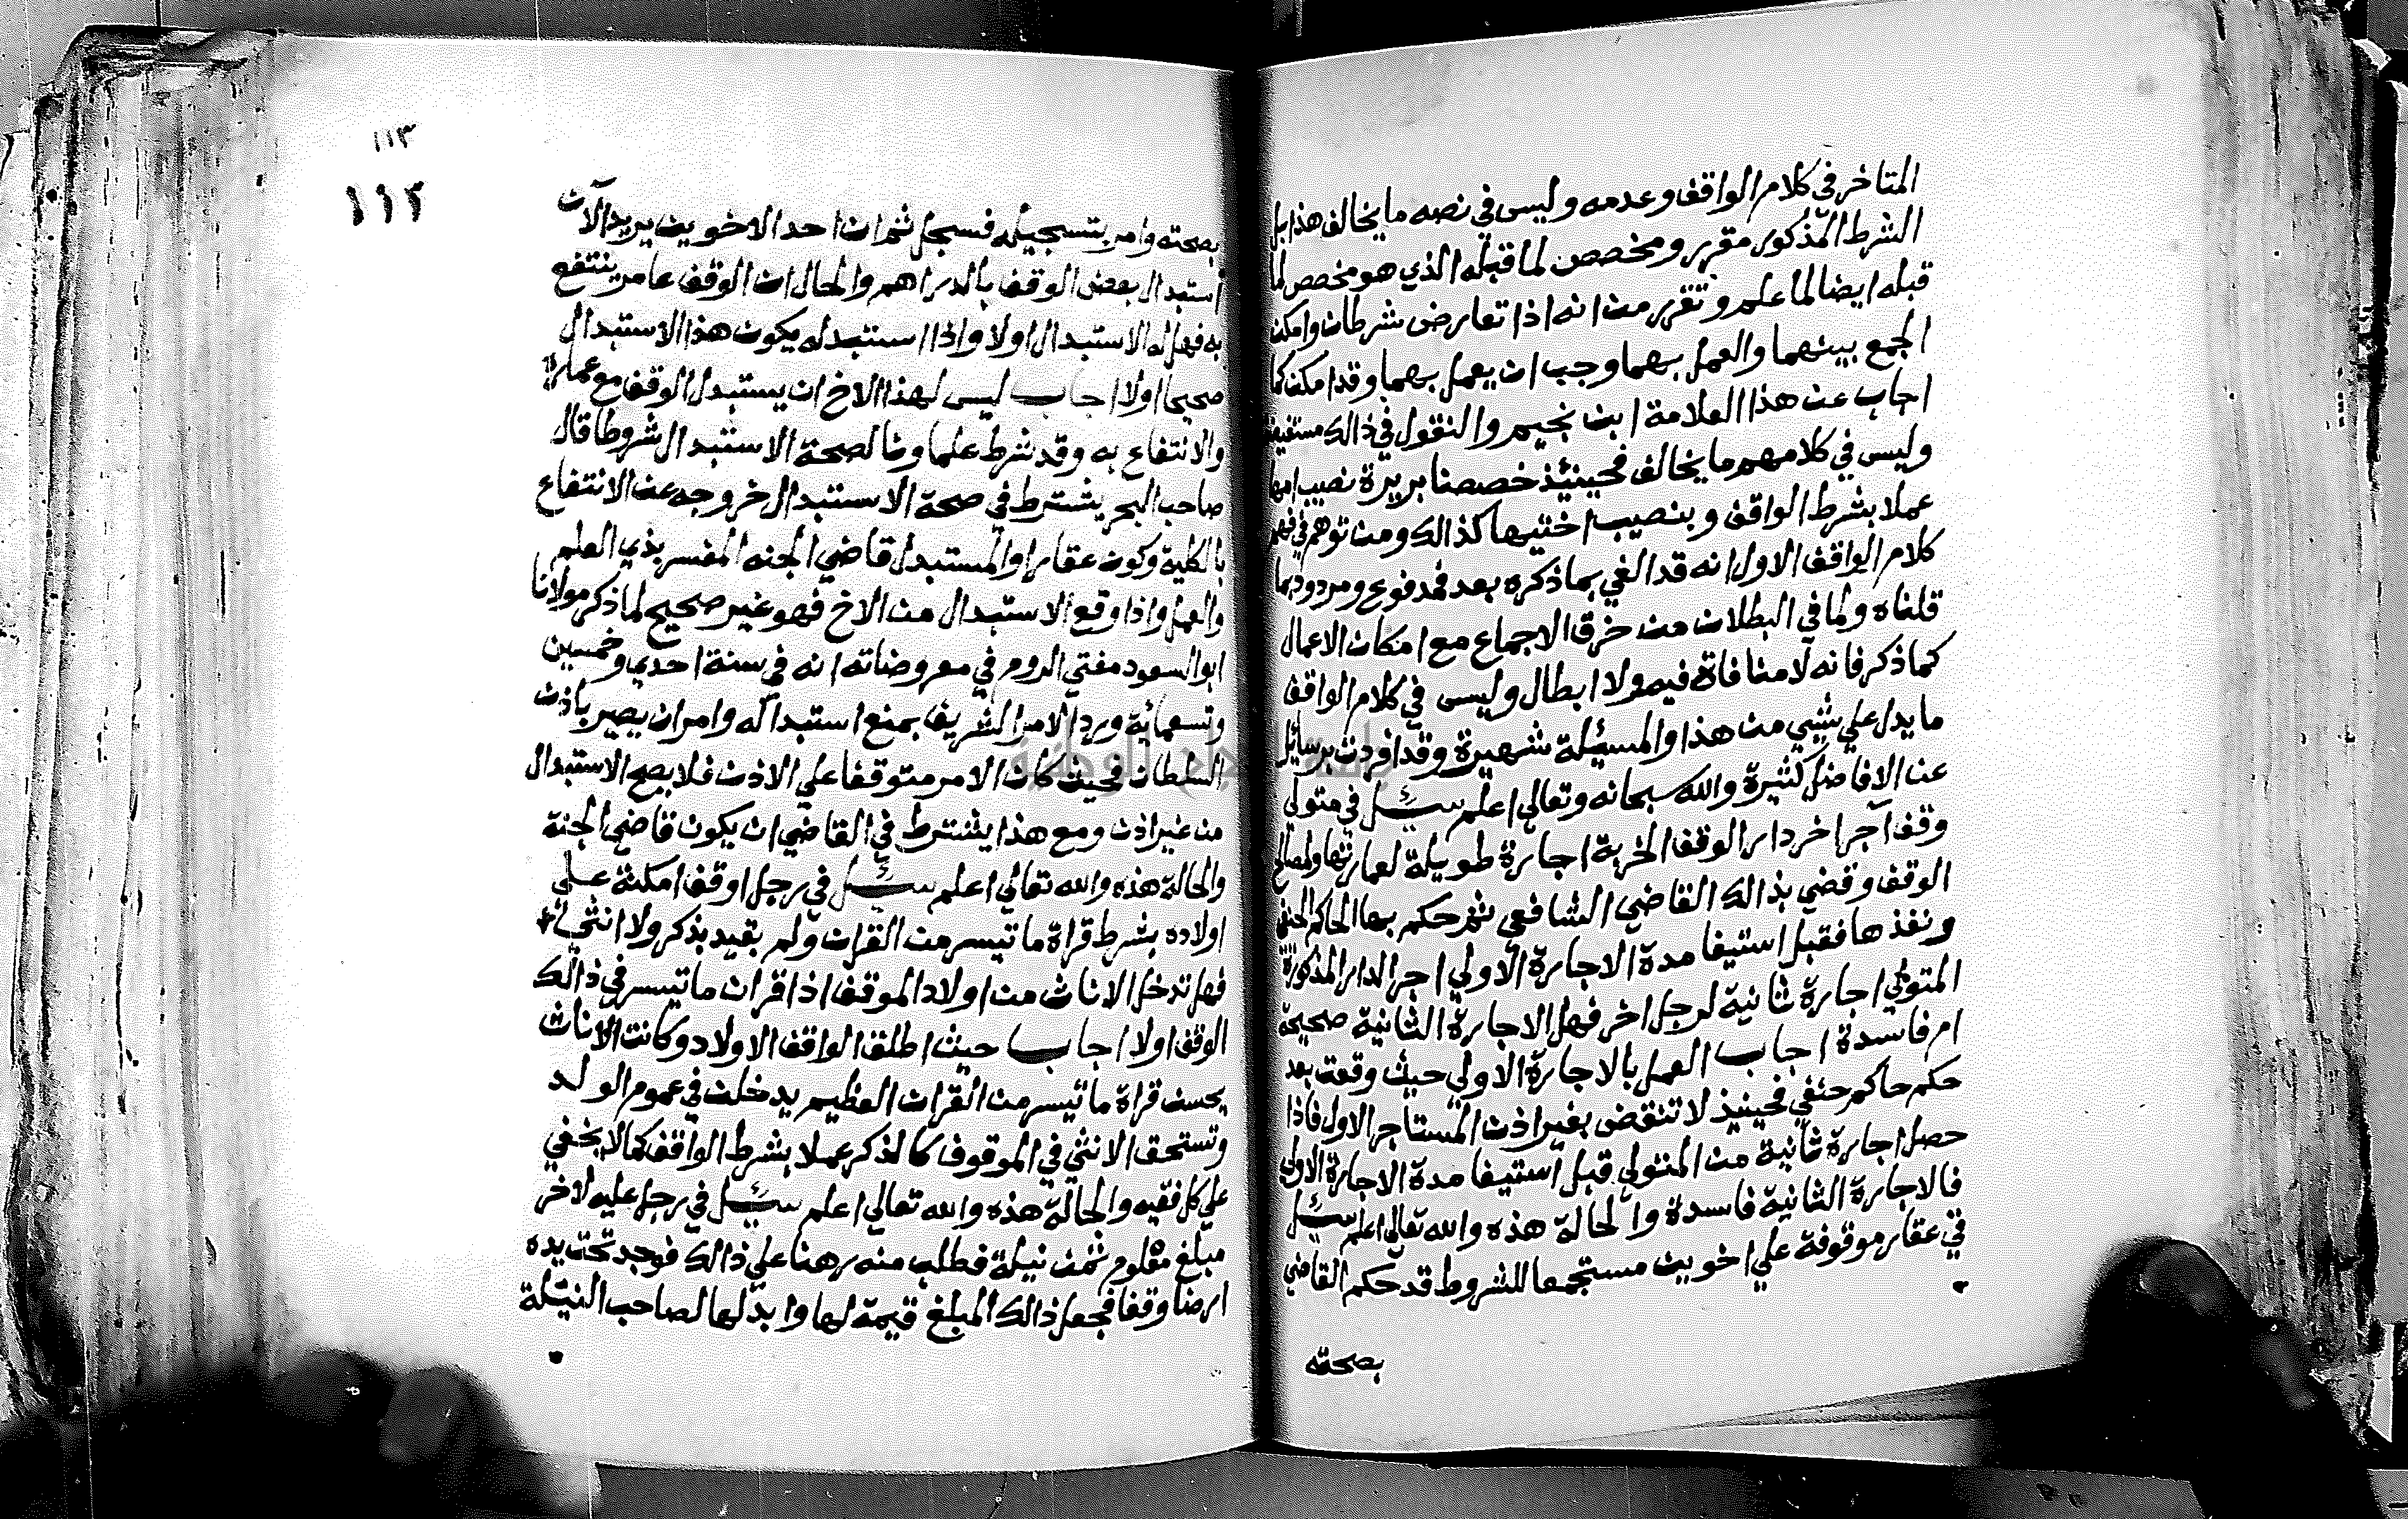 المتاخر في كلام الواقف وعدمه وليس في نصه ما يخالف هذا بل
الشرط المذكور مقرر ومخصص لما قبله الذي هو مخصص لما
قبله ايضا لما علم وتقرر من انه اذا تعارض شرطان وامكن
الجمع بينهما والعمل بهما وجب ان يعمل بهما وقد امكن كما
اجاب عن هذا العلامة ابن نجيم والنقول في ذالك مستفيضة
وليس في كلامهم ما يخالف فحينئذ خصصنا بريرة نصيب امها
عملا بشرط الواقف وبنصيب اختيها كذالك ومن توهم في فهم
كلام الواقف الاول انه قد الغي بما ذكره بعد فمدفوع ومردود بما
قلناه ولما في البطلان من خرق الاجماع مع امكان الاعمال
كما ذكر فانه لا منافاة فيه ولا ابطال وليس في كلام الواقف
ما يدل علي شيي من هذا والمسئلة شهيرة وقد افردت برسائل
عن الافاضل كثيرة والله سبحانه وتعالى اعلم سئل في متولي
وقف آجر اخر دار الوقف الخربة اجارة طويلة لعمارتها ولمصالح
الوقف وقضي بذالك القاضي الشافعي ثم حكم بها الحاكم الحنفي
ونفذها فقبل استيفا مدة الاجارة الاولي اجر الدار المذكورة
المتولي اجارة ثانية لرجل اخر فهل الاجارة الثانية صحيحة
ام فاسدة اجاب العمل بالاجارة الاولي حيث وقعت بعد
حكم حاكم حنفي فحينيذ لا تنتقض بغير اذن المستاجر الاول فاذا
حصل اجارة ثانية من المتولي قبل استيفا مدة الاجارة الاولي
فالاجارة الثانية فاسدة والحالة هذه والله تعالى اعلم سئل
في عقار موقوفة علي اخوين مستجمعا للشروط قد حكم القاضي
بصحته
١١٣
١١٢
بصحته وامر بتسجيله فسجل ثم ان احد الاخوين يريد الان
استبدال بعض الوقف بالدراهم والحال ان الوقف عامر ينتفع
به فهل له الاستبدال اولا واذا استبدله يكون هذا الاستبدال
صحيحا اولا اجاب ليس لهذا الاخ ان يستبدل الوقف مع عماره
والانتفاع به وقد شرط علماونا لصحة الاستبدال شروطا قال
صاحب البحر يشترط في صحة الاستبدال خروجه عن الانتفاع
بالكلية وكون عقارا والمستبدل قاضي الجنه المفسر بذي العلم
والعمل واذا وقع الاستبدال من الاخ فهو غير صحيح لما ذكر مولانا
ابو السعود مفتي الروم في معروضاته انه في سنة احدي وخمسين
وتسعمائة ورد الامر الشريف بمنع استبداله وامر ان يصير باذن
السلطان فحيث كان الامر متوقفا علي الاذن فلا يصح الاستبدال
من غير اذن ومع هذا يشترط في القاضي ان يكون قاضي الجنة
والحالة هذه والله تعالي اعلم سئل في رجل اوقف امكنة علي
اولاده بشرط قراة ما تيسر من القران ولم يقيد بذكر ولا انثي
فهل تدخل الاناث من اولاد الموقف اذا قران ما تيسر في ذالك
الوقف اولا اجاب حيث اطلق الواقف الاولاد وكانت الاناث
يحسن قراة ما تيسر من القران العظيم يدخلن في عموم الولد
وتستحق الانثي في الموقوف كالذكر عملا بشرط الواقف كما لا يخفي
علي كل فقيه والحالة هذه والله تعالي اعلم سئل في رجل عليه لاخر
مبلغ معلوم ثمن نيلة فطلب منه رهنا علي ذالك فوجد تحت يده
ارضا وقفا فجعل ذالك المبلغ قيمة لها وابدلها لصاحب النيلة